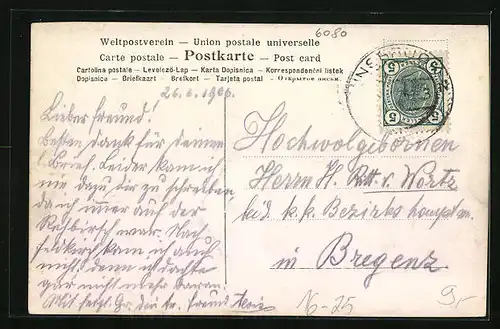 6080
Weltpostverein – Union postale universelle
Carte postale – Postkarte – Post card
Cartolina postale – Levelező-Lap – Karta Dopisnica – Korrespondenční lístek
Dopisnica – Briefkaart – Brefkort – Tarjeta postal –
INNSBRUCK
5 5
26. 1906.
Lieber Freund!
Besten Dank für deinen
l. Brief. Leider kam ich
nie dazu dir zu schreiben,
da ich immer auf der
war. Nach
Feldkirch kam ich auch
nicht, denn ich dachte
gar nicht mehr daran.
Mit herzl. Gr. dein tr. Freund
Hochwolgebornen
Herrn H. Ritt. v. Wortz
bei d. k. k. Bezirks
in Bregenz
16-25